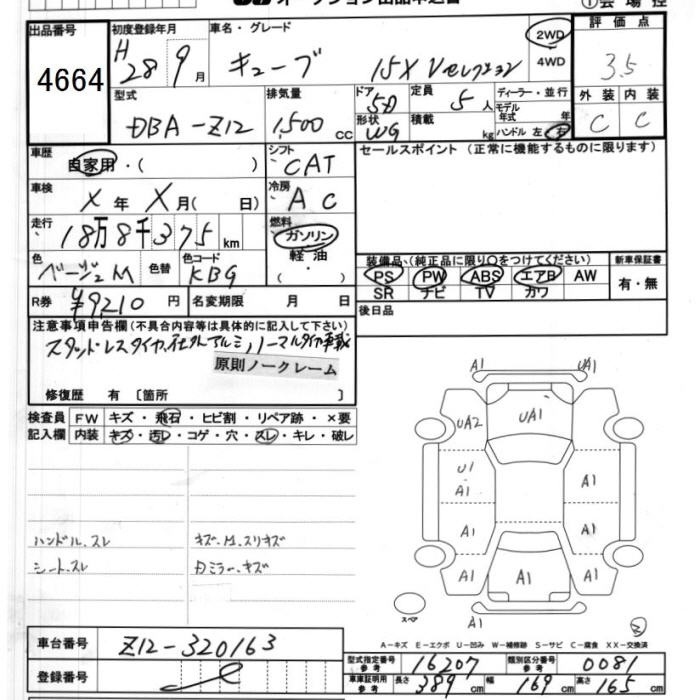 オークション出品申込書
①会場控
出品番号 初度登録年月 車名・グレード 評価点
4664 H28 9月 キューブ 15X Vセレクション 2WD 3.5
4WD
型式 排気量 ドア 5D 定員 5人 ディーラー・並行 外装 内装
モデル年式 年
DBA-Z12 1,500cc 形状 WG 積載 kg ハンドル 左 右 C C
車歴 自家用・( ) シフト CAT セールスポイント(正常に機能するものに限ります)
車検 X年 X月( 日) 冷房 AC
走行 18万8千375km 燃料 ガソリン
軽油
( ・ )
色 ベージュM 色替 色コード KBG
装備品(純正品に限り○をつけてください) 新車保証書
PS PW ABS エアB AW 有・無
SR ナビ TV カワ
R券 ¥9,210円 名変期限 月 日 後日品
注意事項申告欄(不具合内容等は具体的に記入して下さい)
スタッドレスタイヤ、社外アルミ、ノーマルタイヤ車載
原則ノークレーム
修復歴 有 〔箇所 〕
検査員 FW キズ・飛石・ヒビ割・リペア跡・×要
記入欄 内装 キズ・汚レ・コゲ・穴・スレ・キレ・破レ
A1 UA1
UA2 UA1 A1
U1 A1 A1
A1 A1
A1 A1 A1
A1
ハンドル、スレ キズ、M、スリキズ
シート、スレ Dミラー、キズ
スペア
A-キズ E-エクボ U-凹み W-補修跡 S-サビ C-腐食 XX-交換済
車台番号 Z12-320163
登録番号
型式指定番号 参考 16207 類別区分番号 参考 0081
車庫証明用 参考 長さ 389cm 幅 169cm 高さ 165cm